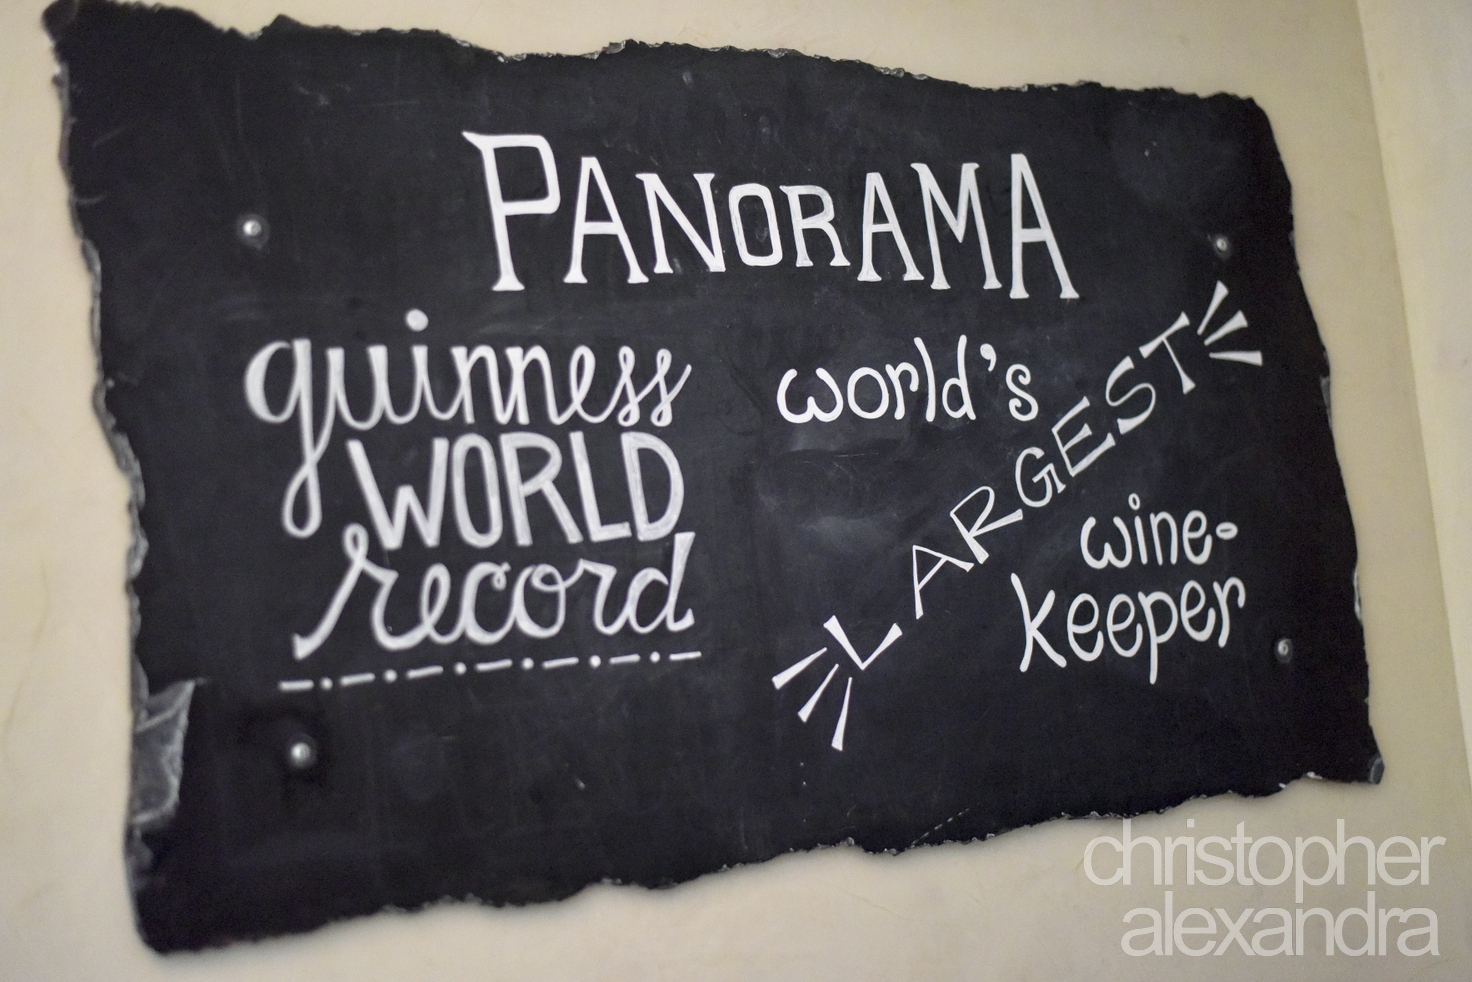 PANORAMA
guinness
WORLD
record
world's
LARGEST
wine-
keeper
christopher
alexandra